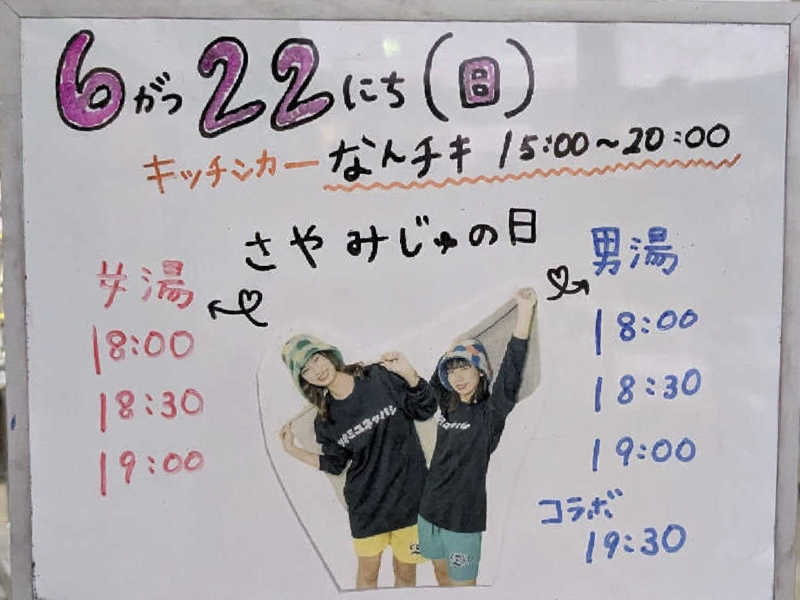 6がつ22にち(日)
キッチンカー なんチキ 15:00~20:00
さやみじゅの日
女湯
18:00
18:30
19:00
男湯
18:00
18:30
19:00
コラボ
19:30